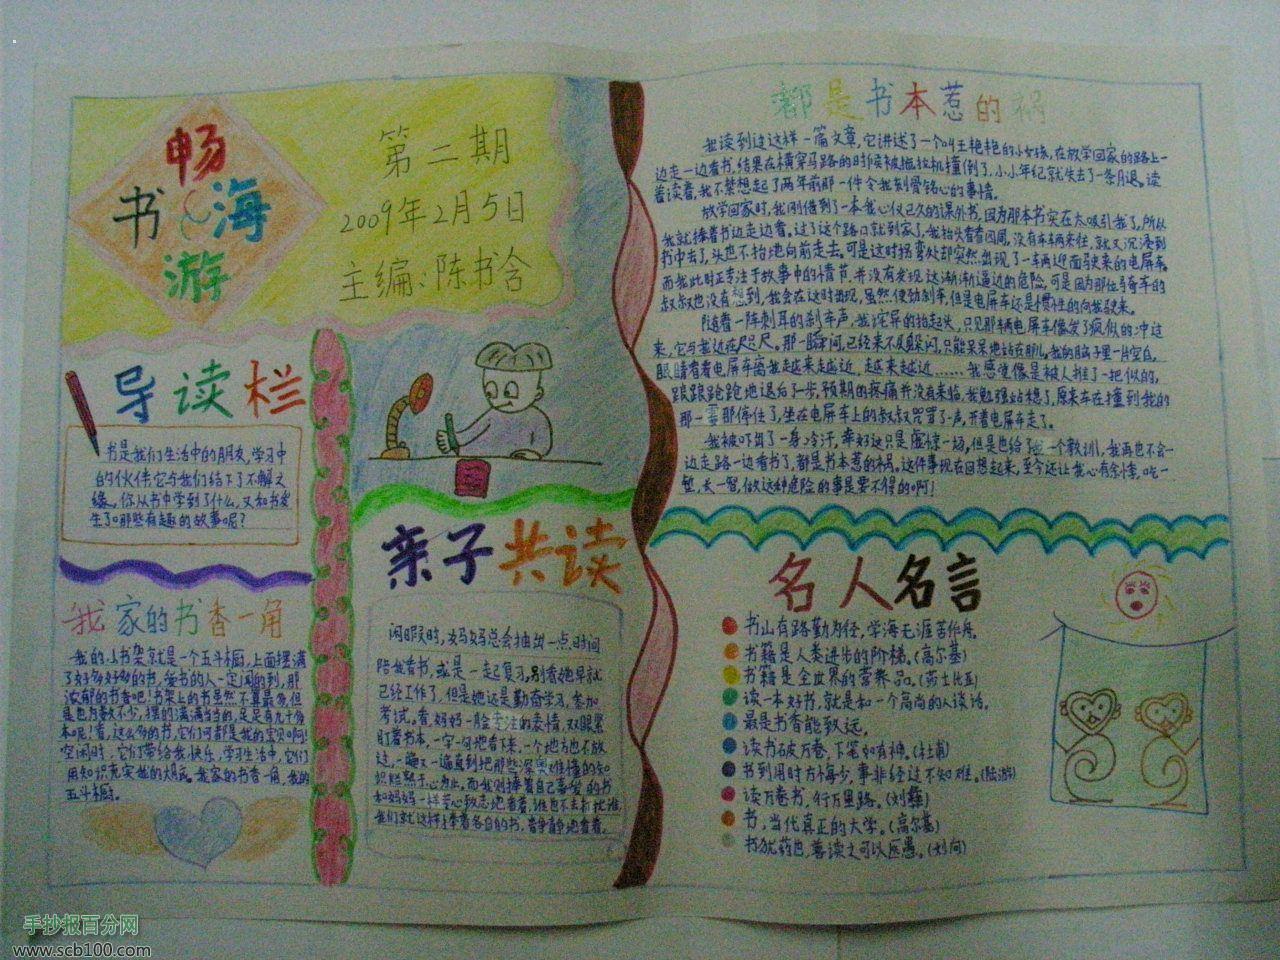 畅
书海
游
第二期
2009年2月5日
主编:陈书含
导读栏
书是我们生活中的朋友,学习中
的伙伴,它与我们结下了不解之
缘。你从书中学到了什么,又和书发
生了哪些有趣的故事呢?
我家的书香一角
我的小书架就是一个五斗橱,上面摆满
了好多好多的书,爱书的人一定闻的到,那
浓郁的书香吧!书架上的书虽然不算最多,但
是也为数不少,摆的满满当当的,足足有九十多
本呢!看,这么多的书,它们可都是我的宝贝啊!
空闲时,它们带给我快乐,学习生活中,它们
用知识充实我的大脑。我家的书香一角,我的
五斗橱。
亲子共读
闲暇时,妈妈总会抽出一点时间
陪我看书,或是一起复习,别看她早就
已经工作了,但是她还是勤奋学习,参加
考试。看,妈妈一脸专注的表情,双眼紧
盯着书本,一字一句地看下来,一个地方也不放
过,一遍又一遍直到把那些深奥难懂的知
识烂熟于心为止。而我则捧着自己喜爱的书
和妈妈一样专心致志地看着,谁也不去打扰谁,
我们就这样捧着各自的书,静静地看着。
都是书本惹的祸
我读到过这样一篇文章,它讲述了一个叫王艳艳的小女孩,在放学回家的路上一
边走一边看书,结果在横穿马路的时候被拖拉机撞倒了,小小年纪就失去了一条月退。读
着读着,我不禁想起了两年前那一件令我刻骨铭心的事情。
放学回家时,我刚借到了一本我心仪已久的课外书,因为那本书实在太吸引我了,所以
我就捧着书边走边看。过了这个路口就到家了,我抬头看看四周,没有车辆来往,就又沉浸到
书中去了,头也不抬地向前走去。可是这时拐弯处却突然出现了一车两迎面驶来的电屏车。
而我此时正专注于故事中的情节,并没有发现这渐渐逼近的危险,可是因为那位骑车的
叔叔也没有想到,我会在这时出现,虽然使劲刹车,但是电屏车还是惯性的向我驶来。
随着一阵刺耳的刹车声,我诧异的抬起头,只见那辆电屏车像发了疯似的冲过
来,它与我近在咫尺。那一瞬间,已经来不及躲闪,只能呆呆地站在那儿,我的脑子里一片空白,
眼睛看着电屏车离我越来越近,越来越近……我感觉像是被人推了一把似的,
踉踉跄跄地退后了一步,预期的疼痛并没有来临,我勉强站稳了,原来车在撞到我的
那一霎那停住了,坐在电屏车上的叔叔咒骂了一声,开着电屏车走了。
我被吓出了一身冷汗,幸好这只是虚惊一场,但是也给了我一个教训,我再也不会一
边走路一边看书了,都是书本惹的祸。这件事现在回想起来,至今还让我心有余悸,吃一
堑,长一智,做这种危险的事是要不得的啊!
名人名言
书山有路勤为径,学海无涯苦作舟。
书籍是人类进步的阶梯。(高尔基)
书籍是全世界的营养品。(莎士比亚)
读一本好书,就是和一个高尚的人谈话。
最是书香能致远。
读书破万卷,下笔如有神。(杜甫)
书到用时方悔少,事非经过不知难。(陆游)
读万卷书,行万里路。(刘彝)
书,当代真正的大学。(高尔基)
书犹药也,善读之可以医愚。(刘向)
手抄报百分网
www.scb100.com